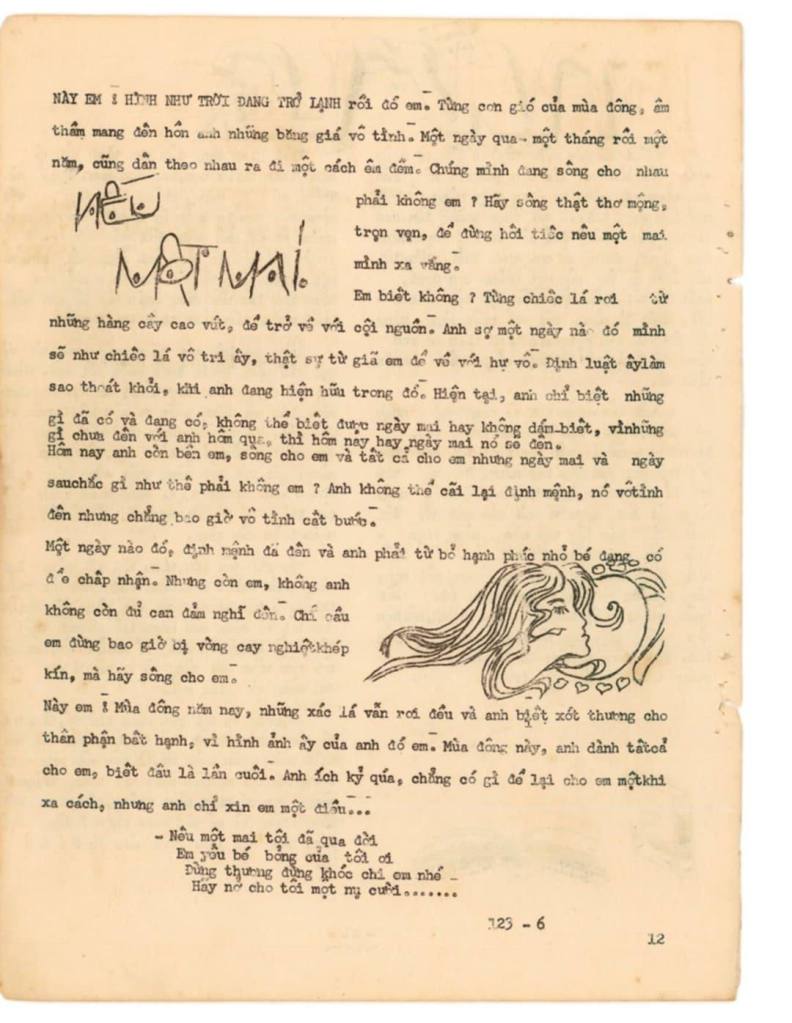 NÀY EM ! HÌNH NHƯ TRỜI ĐANG TRỞ LẠNH rồi đó em. Từng cơn gió của mùa đông, âm
thầm mang đến hồn anh những băng giá vô tình. Một ngày qua - một tháng rồi một
năm, cũng dần theo nhau ra đi một cách êm đềm. Chúng mình đang sống cho nhau
NẾU
MỘT MAI
phải không em ? Hãy sống thật thơ mộng,
trọn vẹn, để đừng hối tiếc nếu một mai
mình xa vắng.
Em biết không ? Từng chiếc lá rơi từ
những hàng cây cao vút, để trở về với cội nguồn. Anh sợ một ngày nào đó mình
sẽ như chiếc lá vô tri ấy, thật sự từ giã em để về với hư vô. Định luật ấylàm
sao thoát khỏi, khi anh đang hiện hữu trong đó. Hiện tại, anh chỉ biết những
gì đã có và đang có, không thể biết được ngày mai hay không dám biết, vìnhững
gì chưa đến với anh hôm qua, thì hôm nay hay ngày mai nó sẽ đến.
Hôm nay anh còn bên em, sống cho em và tất cả cho em nhưng ngày mai và ngày
sauchắc gì như thế phải không em ? Anh không thể cãi lại định mệnh, nó vôtình
đến nhưng chẳng bao giờ vô tình cất bước.
Một ngày nào đó, định mệnh đã đến và anh phải từ bỏ hạnh phúc nhỏ bé đang có
để chấp nhận. Nhưng còn em, không anh
không còn đủ can đảm nghĩ đến. Chỉ cầu
em đừng bao giờ bị vòng cay nghiệtkhép
kín, mà hãy sống cho em.
Này em ! Mùa đông năm nay, những xác lá vẫn rơi đều và anh biết xót thương cho
thân phận bất hạnh, vì hình ảnh ấy của anh đó em. Mùa đông này, anh dành tấtcả
cho em, biết đâu là lần cuối. Anh ích kỷ qúa, chẳng có gì để lại cho em mộtkhi
xa cách, nhưng anh chỉ xin em một điều...
- Nếu một mai tôi đã qua đời
Em yêu bé bỏng của tôi ơi
Đừng thương đừng khóc chi em nhé -
Hãy nở cho tôi một nụ cười.......
123 - 6
12